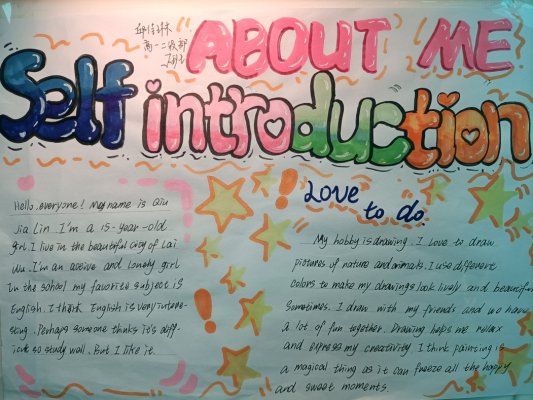 ABOUT ME
Self introduction
Hello, everyone! My name is Qiu
Jia Lin. I'm a 15-year-old
girl. I live in the beautiful city of Lai
Wu. I'm an active and lonely girl
In the school my favorite subject is
English. I think English is very intere-
sting. Perhaps someone thinks it's diff-
icult so study well. But I like it.
Love
to do
My hobby is drawing. I love to draw
pictures of nature and animals. I use different
colors to make my drawings look lively and beautiful
Sometimes. I draw with my friends and we have
a lot of fun together. Drawing helps me relax
and express my creativity. I think painting is
a magical thing as it can freeze all the happy
and sweet moments.